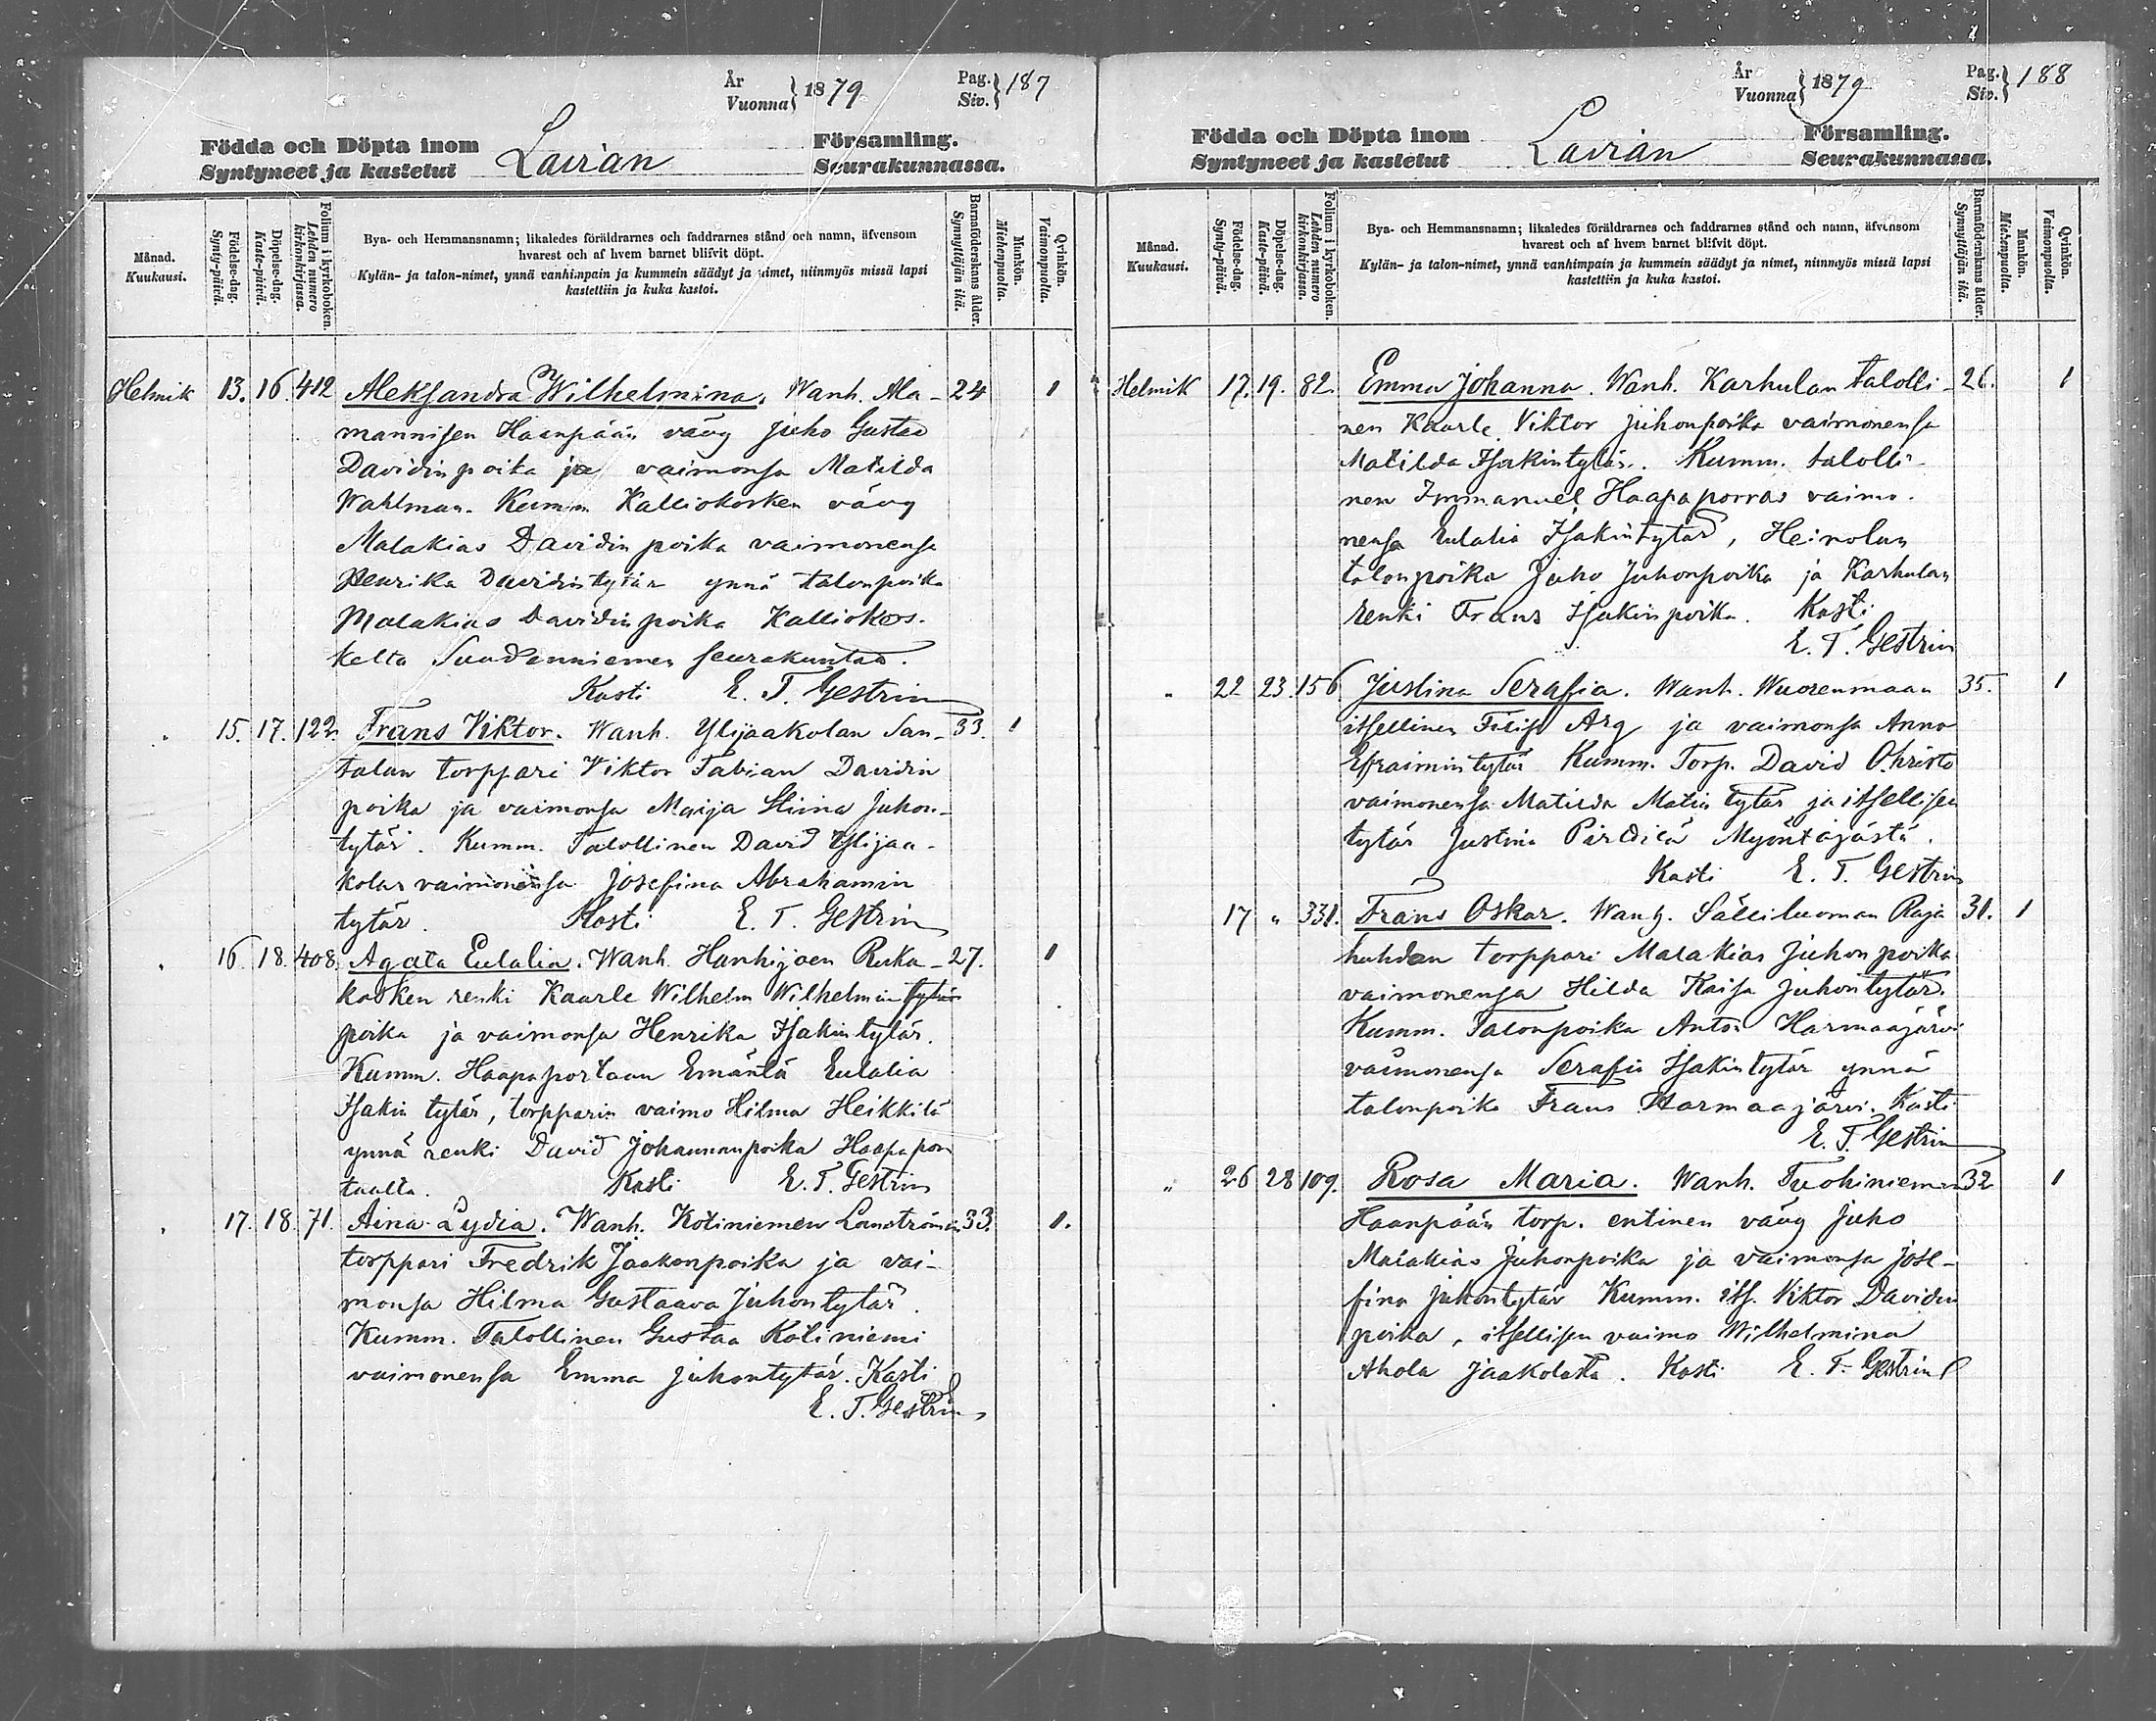 År
Vuonna} 1879
Pag.
Siv.} 187
Födda och Döpta inom
Syntyneet ja kastetut
Lavian
Församling.
Seurakunnassa.
Månad.
Kuukausi.
Födelse-dag.
Synty-päivä.
Döpelse-dag.
Kaste-päivä.
Folium i kyrkoboken.
Lehden numero
kirkonkirjassa.
Bya- och Hemmansnamn; likaledes föräldrarnes och faddrarnes stånd och namn, äfvensom
hvarest och af hvem barnet blifvit döpt.
Kylän- ja talon-nimet, ynnä vanhimpain ja kummein säädyt ja nimet, niinmyös missä lapsi
kastettiin ja kuka kastoi.
Barnaföderskans ålder.
Synnyttäjän ikä.
Mankön.
Miehenpuolia.
Qvinkön.
Vaimonpuolia.
Helmik 13. 16. 412 Aleksandra Wilhelmina. Wanh. Ala- 24 1
mannisen Haanpään väug Juho Gustav
Davidinpoika ja vaimonsa Matilda
Wahlman. Kumm Kalliokosken väug
Malakias Davidin poika vaimonensa
Henrika Davidintytär ynnä talonpoika
Malakias Davidinpoika Kalliokos-
kelta Suodenniemen seurakuntaa.
Kasti E. T. Gestrin
" 15. 17. 122. Frans Viktor. Wanh. Ylijaakolan San- 33. 1
talan torppari Viktor Fabian Davidin
poika ja vaimonsa Maija Stiina Juhon-
tytär. Kumm. Talollinen David Ylijaa-
kolas vaimonensa Josefina Abrahamin
tytär. Kasti E. T. Gestrin
" 16. 18. 408. Agata Eulalia. Wanh. Hanhijoen Ruka- 27. 1
kosken renki Kaarle Wilhelm Wilhelmin tytär
poika ja vaimonsa Henrika Isakintytär.
Kumm. Haapaportaan Emäntä Eulalia
Isakin tytär, torpparin vaimo Hilma Heikkilä
ynnä renki David Johannanpoika Haapapor
taalta. Kasti E. T. Gestrin
" 17. 18. 71. Aina Lydia. Wanh. Kotiniemen 33. 1.
torppari Fredrik Jaakonpoika ja vai-
monsa Hilma Gustaava Juhontytär.
Kumm. Talollinen Gustaa Kotiniemi
vaimonensa Emma Juhontytär. Kasti
E. T. Gestrin
År
Vuonna} 1879
Pag.
Siv.} 188
Födda och Döpta inom
Syntyneet ja kastetut
Lavian
Församling.
Seurakunnassa.
Månad.
Kuukausi.
Födelse-dag.
Synty-päivä.
Döpelse-dag.
Kaste-päivä.
Folium i kyrkoboken.
Lehden numero
kirkonkirjassa.
Bya- och Hemmansnamn; likaledes föräldrarnes och faddrarnes stånd och namn, äfvensom
hvarest och af hvem barnet blifvit döpt.
Kylän- ja talon-nimet, ynnä vanhimpain ja kummein säädyt ja nimet, niinmyös missä lapsi
kastettiin ja kuka kastoi.
Barnaföderskans ålder.
Synnyttäjän ikä.
Mankön.
Miehenpuolia.
Qvinkön.
Vaimonpuolia.
Helmik 17. 19. 82. Emma Johanna. Wanh. Karhulan talolli- 26. 1
nen Kaarle Viktor Juhonpoika vaimonensa
Matilda Isakintytär. Kumm. talolli-
nen Immanuel Haapaporras vaimo-
nensa Eulalia Isakintytär, Heinolan
talonpoika Juho Juhonpoika ja Karhulan
renki Frans Isakinpoika. Kasti
E. T. Gestrin
" 22 23. 156 Justina Serafia. Wanh. Wuorenmaan 35. 1
itsellinen Filip Arg ja vaimonsa Anna
Efraimintytär Kumm. Torp. David Ohristo
vaimonensa Matilda Matin tytär ja itsellisen
tytär Justina Myöntäjästä.
Kasti E. T. Gestrin
17 " 331. Frans Oskar. Wanh. Sälliluoman Raja 31. 1
huhdan torppari Malakias Juhonpoika
vaimonensa Hilda Kaisa Juhontytär.
Kumm. Talonpoika Anton Harmaajärvi
vaimonensa Serafia Isakintytär ynnä
talonpoika Frans Harmaajärvi. Kasti
E. T. Gestrin
" 26 28 109. Rosa Maria. Wanh. Tuohiniemen 32 1
Haanpään torp. entinen väug Juho
Malakias Juhonpoika ja vaimonsa Jose-
fina Juhontytär Kumm. its. Viktor Davidin
poika, itsellisen vaimo Wilhelmina
Ahola Jaakolasta. Kasti E. T. Gestrin